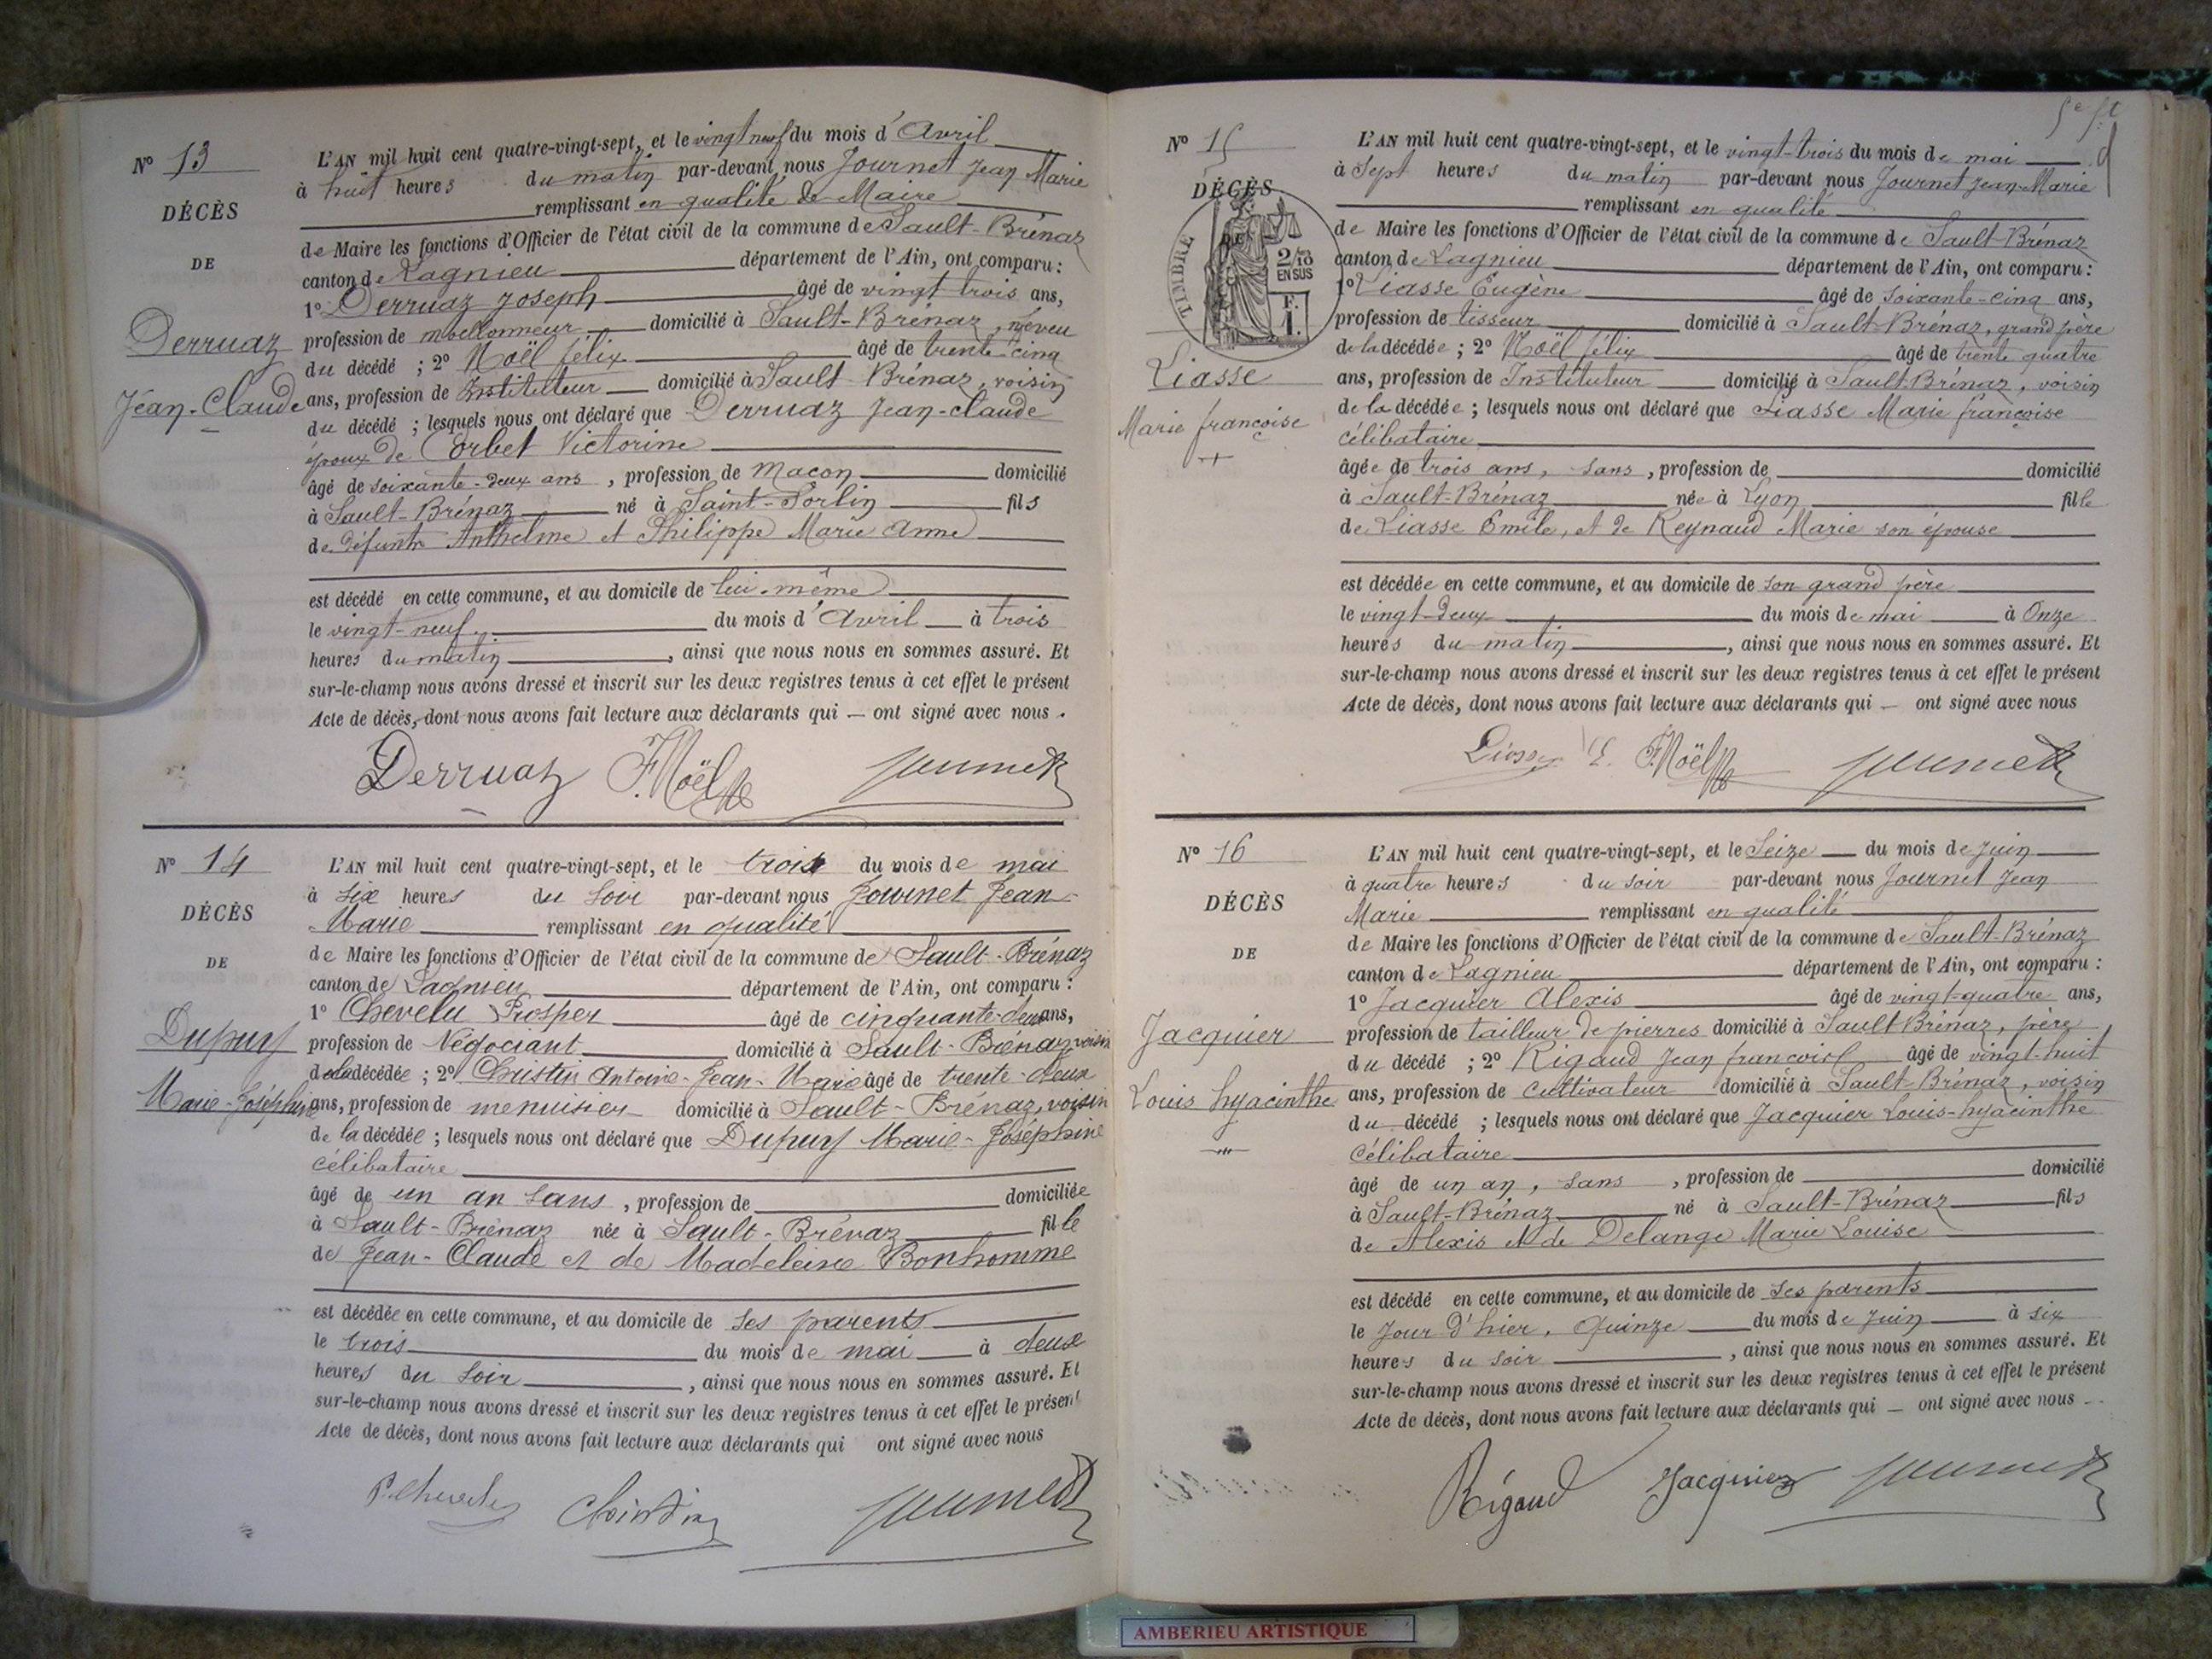 Nº 13
DÉCÈS
DE
Derruaz
Jean-Claude
L'AN mil huit cent quatre-vingt-sept, et le vingt neuf du mois d'Avril
à huit heures du matin par-devant nous Journet Jean Marie
remplissant en qualité de Maire
de Maire les fonctions d'Officier de l'état civil de la commune de Sault-Brénaz
canton de Lagnieu département de l'Ain, ont comparu :
1º Derruaz Joseph âgé de vingt trois ans,
profession de moellonneur domicilié à Sault-Brénaz, neveu
du décédé ; 2º Noël félix âgé de trente-cinq
ans, profession de Instituteur domicilié à Sault-Brénaz, voisin
du décédé ; lesquels nous ont déclaré que Derruaz Jean-Claude
époux de Corbet Victorine
âgé de soixante-deux ans, profession de maçon domicilié
à Sault-Brénaz né à Saint-Sorlin fils
de défunts Anthelme et Philippe Marie Anne
est décédé en cette commune, et au domicile de lui-même
le vingt-neuf du mois d'Avril à trois
heures du matin, ainsi que nous nous en sommes assuré. Et
sur-le-champ nous avons dressé et inscrit sur les deux registres tenus à cet effet le présent
Acte de décès, dont nous avons fait lecture aux déclarants qui — ont signé avec nous.
Derruaz F. Noël Journet
Nº 14
DÉCÈS
DE
Dupuy
Marie-Joséphine
L'AN mil huit cent quatre-vingt-sept, et le trois du mois de mai
à six heures du soir par-devant nous Journet Jean-
Marie remplissant en qualité
de Maire les fonctions d'Officier de l'état civil de la commune de Sault-Brénaz
canton de Lagnieu département de l'Ain, ont comparu :
1º Chevelu Prosper âgé de cinquante-deux ans,
profession de Négociant domicilié à Sault-Brénaz, voisin
de la décédée ; 2º Christin Antoine-Jean-Marie âgé de trente-deux
ans, profession de menuisier domicilié à Sault-Brénaz, voisin
de la décédée ; lesquels nous ont déclaré que Dupuy Marie-Joséphine
célibataire
âgé de un an sans, profession de domiciliée
à Sault-Brénaz née à Sault-Brénaz fille
de Jean-Claude et de Madeleine Bonhomme
est décédée en cette commune, et au domicile de ses parents
le trois du mois de mai à deux
heures du soir, ainsi que nous nous en sommes assuré. Et
sur-le-champ nous avons dressé et inscrit sur les deux registres tenus à cet effet le présent
Acte de décès, dont nous avons fait lecture aux déclarants qui ont signé avec nous
P. Chevelu Christin Journet
Nº 15
DÉCÈS
DE
TIMBRE
2/10
EN SUS
F.
1.
Liasse
Marie françoise
L'AN mil huit cent quatre-vingt-sept, et le vingt-trois du mois de mai
à Sept heures du matin par-devant nous Journet Jean-Marie
remplissant en qualité
de Maire les fonctions d'Officier de l'état civil de la commune de Sault-Brénaz
canton de Lagnieu département de l'Ain, ont comparu :
1º Liasse Eugène âgé de soixante-cinq ans,
profession de tisseur domicilié à Sault-Brénaz, grand père
de la décédée ; 2º Noël félix âgé de trente quatre
ans, profession de Instituteur domicilié à Sault-Brénaz, voisin
de la décédée ; lesquels nous ont déclaré que Liasse Marie françoise
célibataire
âgée de trois ans, sans, profession de domicilié
à Sault-Brénaz née à Lyon fille
de Liasse Emile, et de Reynaud Marie son épouse
est décédée en cette commune, et au domicile de son grand père
le vingt-deux du mois de mai à Onze
heures du matin, ainsi que nous nous en sommes assuré. Et
sur-le-champ nous avons dressé et inscrit sur les deux registres tenus à cet effet le présent
Acte de décès, dont nous avons fait lecture aux déclarants qui — ont signé avec nous
Liasse F. Noël Journet
Nº 16
DÉCÈS
DE
Jacquier
Louis hyacinthe
L'AN mil huit cent quatre-vingt-sept, et le Seize du mois de juin
à quatre heures du soir par-devant nous Journet Jean
Marie remplissant en qualité
de Maire les fonctions d'Officier de l'état civil de la commune de Sault-Brénaz
canton de Lagnieu département de l'Ain, ont comparu :
1º Jacquier Alexis âgé de vingt-quatre ans,
profession de tailleur de pierres domicilié à Sault-Brénaz, père
du décédé ; 2º Rigaud Jean françois âgé de vingt-huit
ans, profession de cultivateur domicilié à Sault-Brénaz, voisin
du décédé ; lesquels nous ont déclaré que Jacquier Louis-hyacinthe
Célibataire
âgé de un an, sans, profession de domicilié
à Sault-Brénaz né à Sault-Brénaz fils
de Alexis et de Delange Marie Louise
est décédé en cette commune, et au domicile de ses parents
le Jour d'hier, quinze du mois de juin à six
heures du soir, ainsi que nous nous en sommes assuré. Et
sur-le-champ nous avons dressé et inscrit sur les deux registres tenus à cet effet le présent
Acte de décès, dont nous avons fait lecture aux déclarants qui — ont signé avec nous
Rigaud Jacquier Journet
AMBERIEU ARTISTIQUE